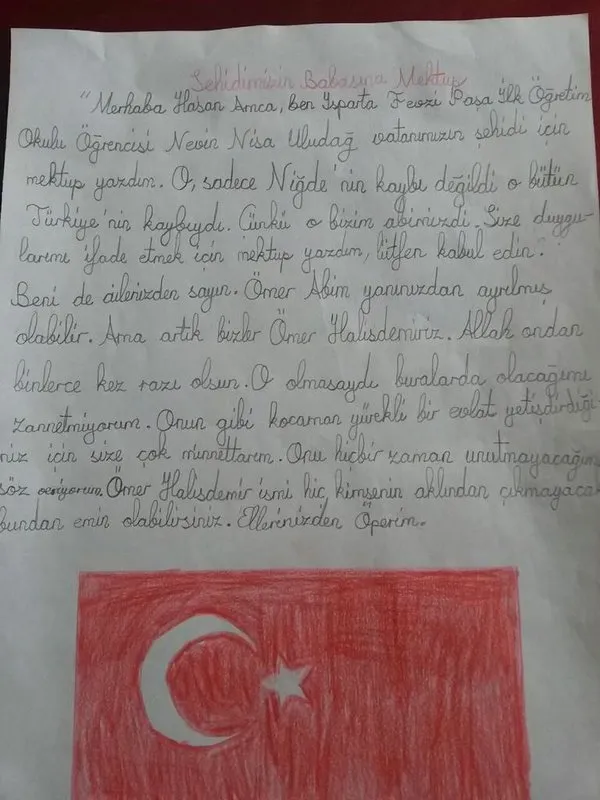 Şehidimizin Babasına Mektup
"Merhaba Hasan Amca, ben Isparta Fevzi Paşa İlk Öğretim
Okulu Öğrencisi Nevin Nisa Uludağ vatanımızın şehidi için
mektup yazdım. O, sadece Niğde'nin kaybı değildi o bütün
Türkiye'nin kaybıydı. Çünkü o bizim abimizdi. Size duygu-
larımı ifade etmek için mektup yazdım, lütfen kabul edin.
Beni de ailenizden sayın. Ömer Abim yanınızdan ayrılmış
olabilir. Ama artık bizler Ömer Halisdemiriz. Allah ondan
binlerce kez razı olsun. O olmasaydı buralarda olacağımı
zannetmiyorum. Onun gibi kocaman yürekli bir evlat yetişdirdiği-
niz için size çok minnettarım. Onu hiçbir zaman unutmayacağım
söz veriyorum. Ömer Halisdemir ismi hiç kimsenin aklından çıkmayacak
bundan emin olabilirsiniz. Ellerinizden Öperim.